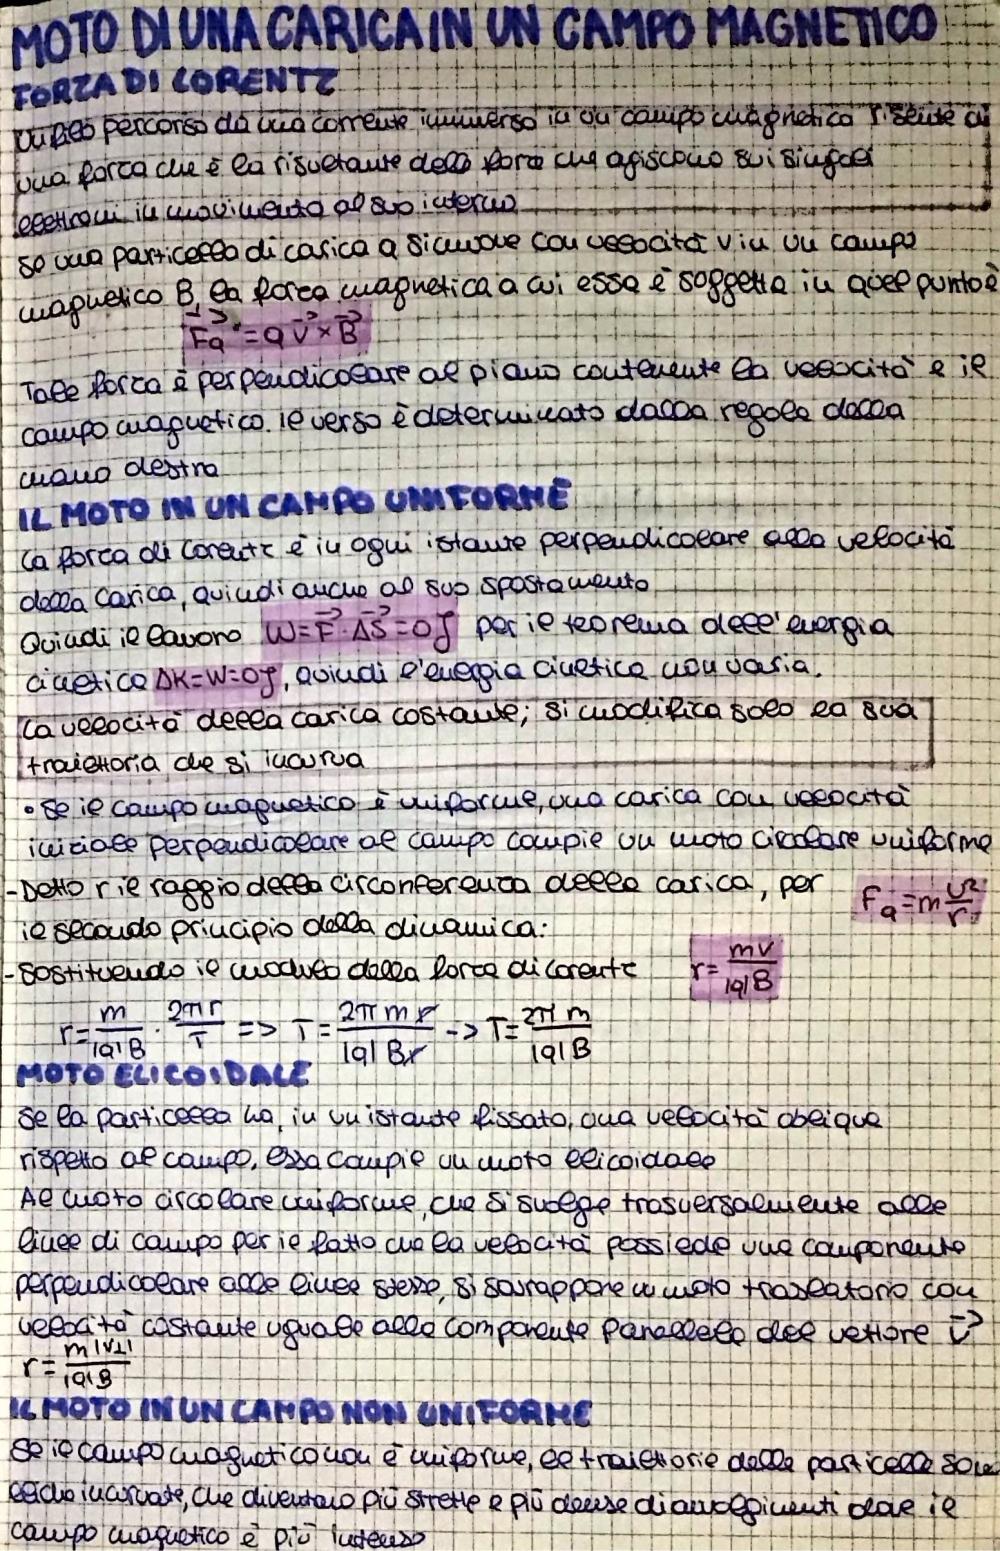 MOTO DI UNA CARICA IN UN CAMPO MAGNETICO
FORZA DI LORENTZ
Un filo percorso da una corrente immerso in un campo magnetico risente di
una forza che è la risultante delle forze che agiscono sui singoli
elettroni in movimento al suo interno
Se una particella di carica q si muove con velocità v in un campo
magnetico B, la forza magnetica a cui essa è soggetta in quel punto è
F⃗q = q v⃗ × B⃗
Tale forza è perpendicolare al piano contenente la velocità e il
campo magnetico. Il verso è determinato dalla regola della
mano destra
IL MOTO IN UN CAMPO UNIFORME
La forza di Lorentz è in ogni istante perpendicolare alla velocità
della carica, quindi anche al suo spostamento
Quindi il lavoro W = F⃗ · ΔS⃗ = 0J per il teorema dell'energia
cinetica ΔK=W=0J, quindi l'energia cinetica non varia.
La velocità della carica costante; si modifica solo la sua
traiettoria che si incurva
• Se il campo magnetico è uniforme, una carica con velocità
iniziale perpendicolare al campo compie un moto circolare uniforme
- Detto r il raggio della circonferenza della carica, per Fq = m v²/r
il secondo principio della dinamica:
- Sostituendo il modulo della forza di Lorentz r = mv/|q|B
r = m/|q|B · 2πr/T => T = 2πmr/|q|Br -> T = 2πm/|q|B
MOTO ELICOIDALE
Se la particella ha, in un istante fissato, una velocità obliqua
rispetto al campo, essa compie un moto elicoidale
Al moto circolare uniforme, che si svolge trasversalmente alle
linee di campo per il fatto che la velocità possiede una componente
perpendicolare alle linee stesse, si sovrappone un moto traslatorio con
velocità costante uguale alla componente parallela del vettore v⃗
r = m|v⊥|/|q|B
IL MOTO IN UN CAMPO NON UNIFORME
Se il campo magnetico non è uniforme, le traiettorie delle particelle sono
eliche incurvate, che diventano più strette e più dense di avvolgimenti dove il
campo magnetico è più intenso